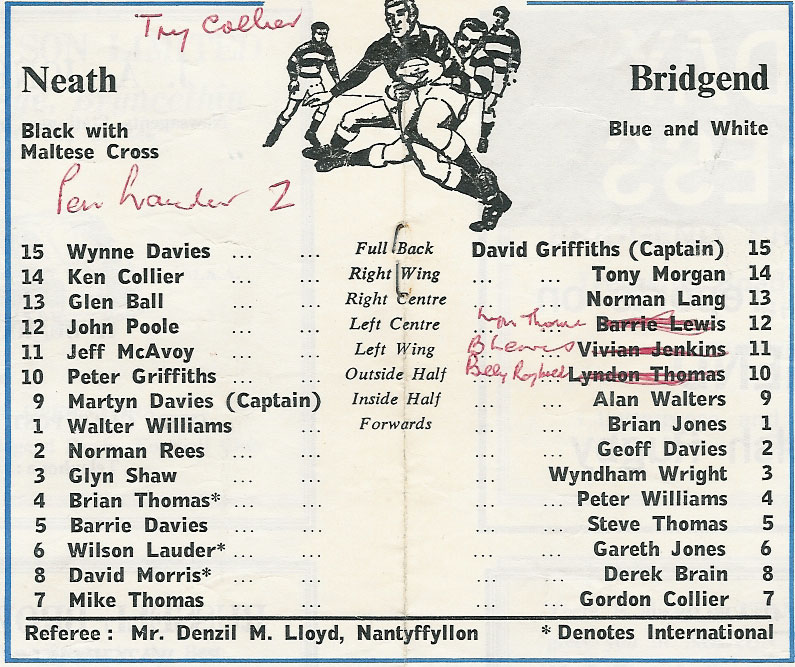 Try Collier
Neath Bridgend
Black with Blue and White
Maltese Cross
Pen Lauder 2
15 Wynne Davies ... ... Full Back David Griffiths (Captain) 15
14 Ken Collier ... ... Right Wing ... ... Tony Morgan 14
13 Glen Ball ... ... Right Centre ... ... Norman Lang 13
12 John Poole ... ... Left Centre Lyn Thomas ... Barrie Lewis 12
11 Jeff McAvoy ... ... Left Wing B Lewis Vivian Jenkins 11
10 Peter Griffiths ... ... Outside Half Billy Lyndon Thomas 10
9 Martyn Davies (Captain) Inside Half ... ... Alan Walters 9
1 Walter Williams ... Forwards ... ... Brian Jones 1
2 Norman Rees ... ... ... ... Geoff Davies 2
3 Glyn Shaw ... ... ... Wyndham Wright 3
4 Brian Thomas* ... ... ... ... Peter Williams 4
5 Barrie Davies ... ... ... ... Steve Thomas 5
6 Wilson Lauder* ... ... ... ... Gareth Jones 6
8 David Morris* ... ... ... ... Derek Brain 8
7 Mike Thomas ... ... ... ... Gordon Collier 7
Referee : Mr. Denzil M. Lloyd, Nantyffyllon * Denotes International